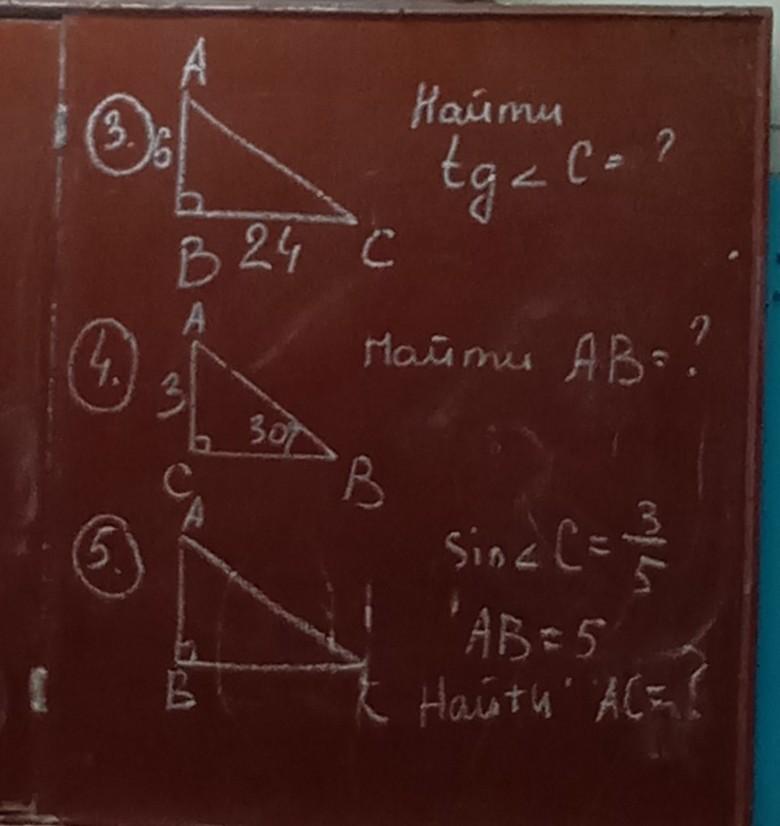 3.
A
6
B 24 C
Найти
tg < C = ?
4.
A
3
30°
C B
Найти AB = ?
5.
A
B C
sin < C = 3/5
AB = 5
Найти AC = ?